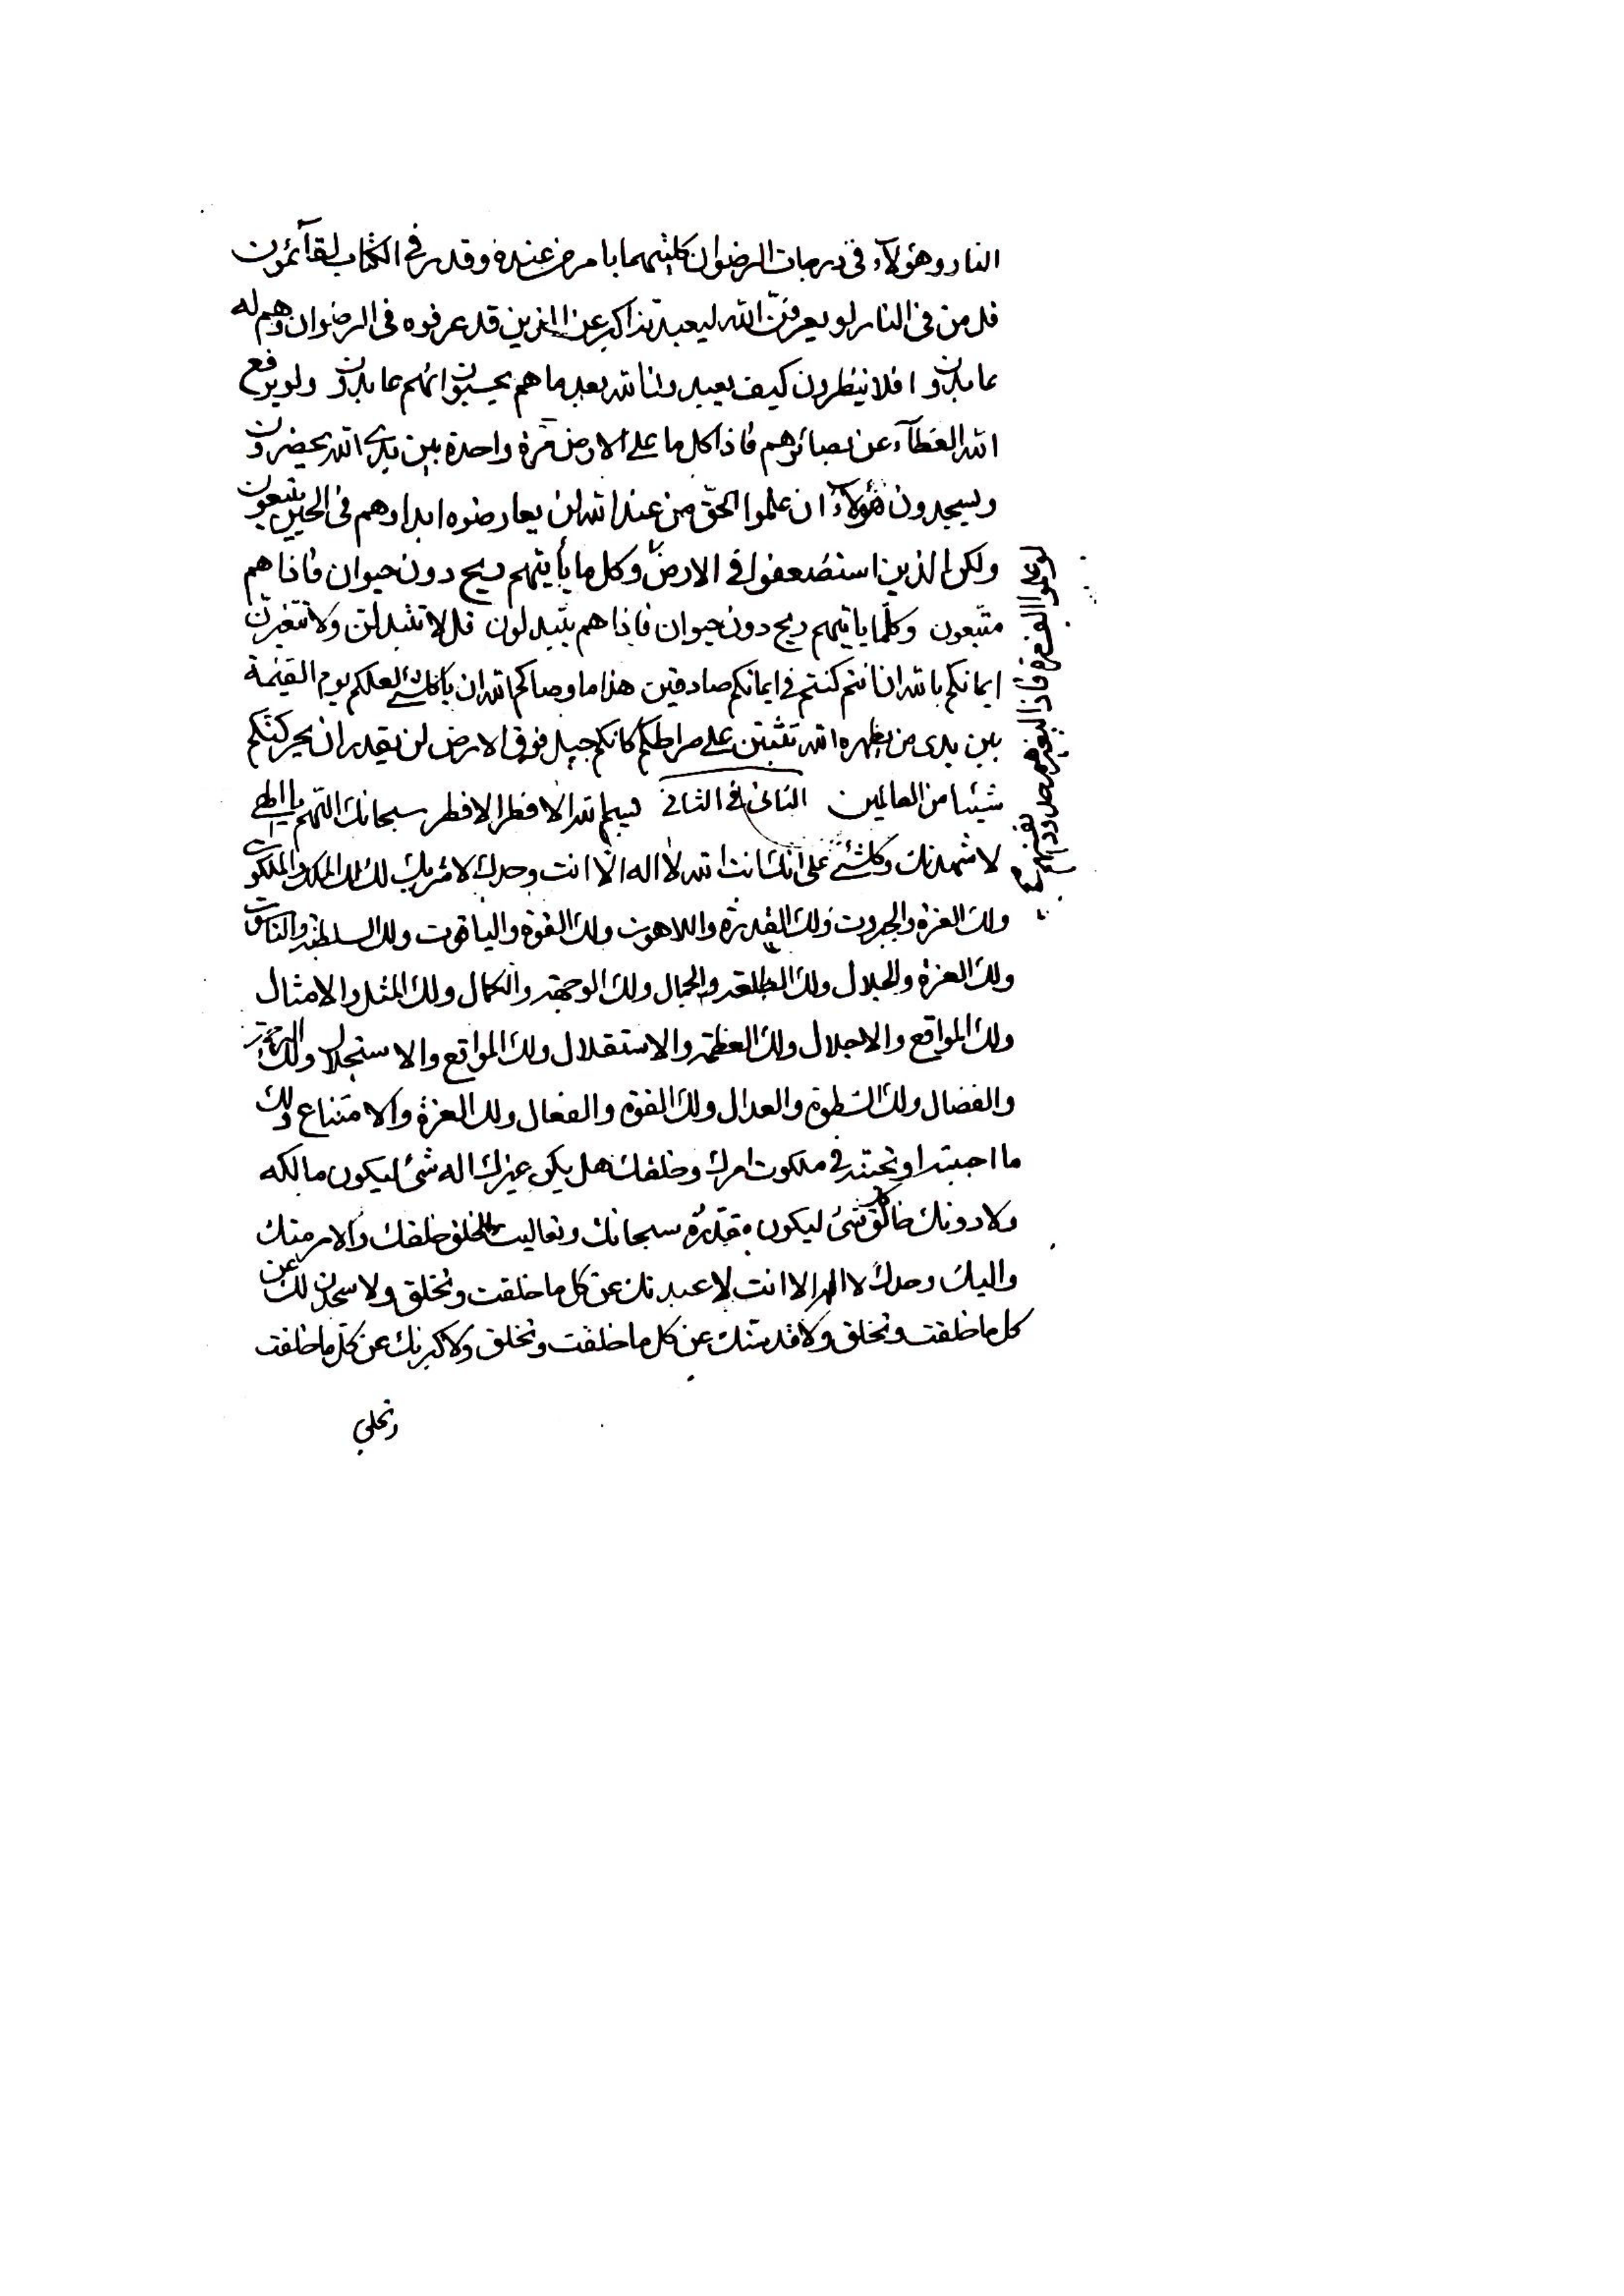 النار وهؤلآء في درجات الرضوان كلتيهما بامر من عنده وقدر في الكتاب لقآئمون
قل من في النار لو يعرفنّ الله ليعبدنه اكبر عن الذين قد عرفوه في الرضوان وهم له
عابدون افلا تنظرون كيف يعبدوننا لله بعد ما هم يحسبون انهم عابدون ولو يرفع
الله الغطآء عن بصائرهم فاذا كل ما على الارض مرة واحدة بين يدي الله يحضرون
ويسجدون هؤلآء ان علموا الحق من عند الله لن يعارضوه ابدا وهم في الحين يتبعون
ولكن الذين استضعفوا في الارض وكل ما يأتيهم ريح دون حيوان فاذا هم
متبعون وكلما ياتيهم ريح دون حيوان فاذا هم يتبدلون قل لا تتبدلن ولا تتغيرن
ايمانكم بالله ان انتم كنتم في ايمانكم صادقين هذا ما وصاكم الله ان يا كلشئ لعلكم يوم القيمة
بين يدي من يظهره الله تثبتن على صراطكم كانكم جبل فوق الارض لن يقدر ان يحركنكم
شيئا من العالمين الثاني في الثاني بسم الله الافطر الافطر سبحانك اللهم يا الهي
لاشهدنك وكلشئ على انك انت الله لا اله الا انت وحدك لا شريك لك لك الملك والملكوت
ولك العزة والجبروت ولك القدرة واللاهوت ولك القوة والياقوت ولك السلطنة والناسوت
ولك العزة والجلال ولك الطلعة والجمال ولك الوجهة والكمال ولك المثل والامثال
ولك المواقع والاجلال ولك العظمة والاستقلال ولك المواقع والاستجلال ولك الرحمة
والفضال ولك السطوة والعدال ولك القوة والفعال ولك العزة والامتناع ولك
ما احببته او تحبنه في ملكوت امرك وخلقك هل يكن غيرك اله شئ ليكون مالكه
ولا دونك خالق كل شئ ليكون مقدره سبحانك وتعاليت الخلق خلقك والامر منك
واليك وحدك لا اله الا انت لاعبدنك عن كل ما خلقت وتخلق ولاسجدن لك عن
كل ما خلقت وتخلق ولاقدسنك عن كل ما خلقت وتخلق ولاكبرنك عن كل ما خلقت
وتخلق